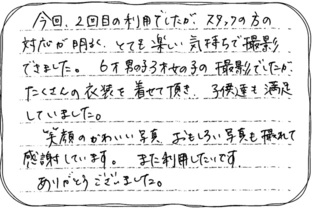 今回、2回目の利用でしたが、スタッフの方の
対応が明るく、とても楽しい気持ちで撮影
できました。 6才男の子3才女の子の撮影でしたが、
たくさんの衣装を着せて頂き、子供達も満足
していました。
笑顔のかわいい写真、おもしろい写真も撮れて
感謝しています。 また利用したいです。
ありがとうございました。